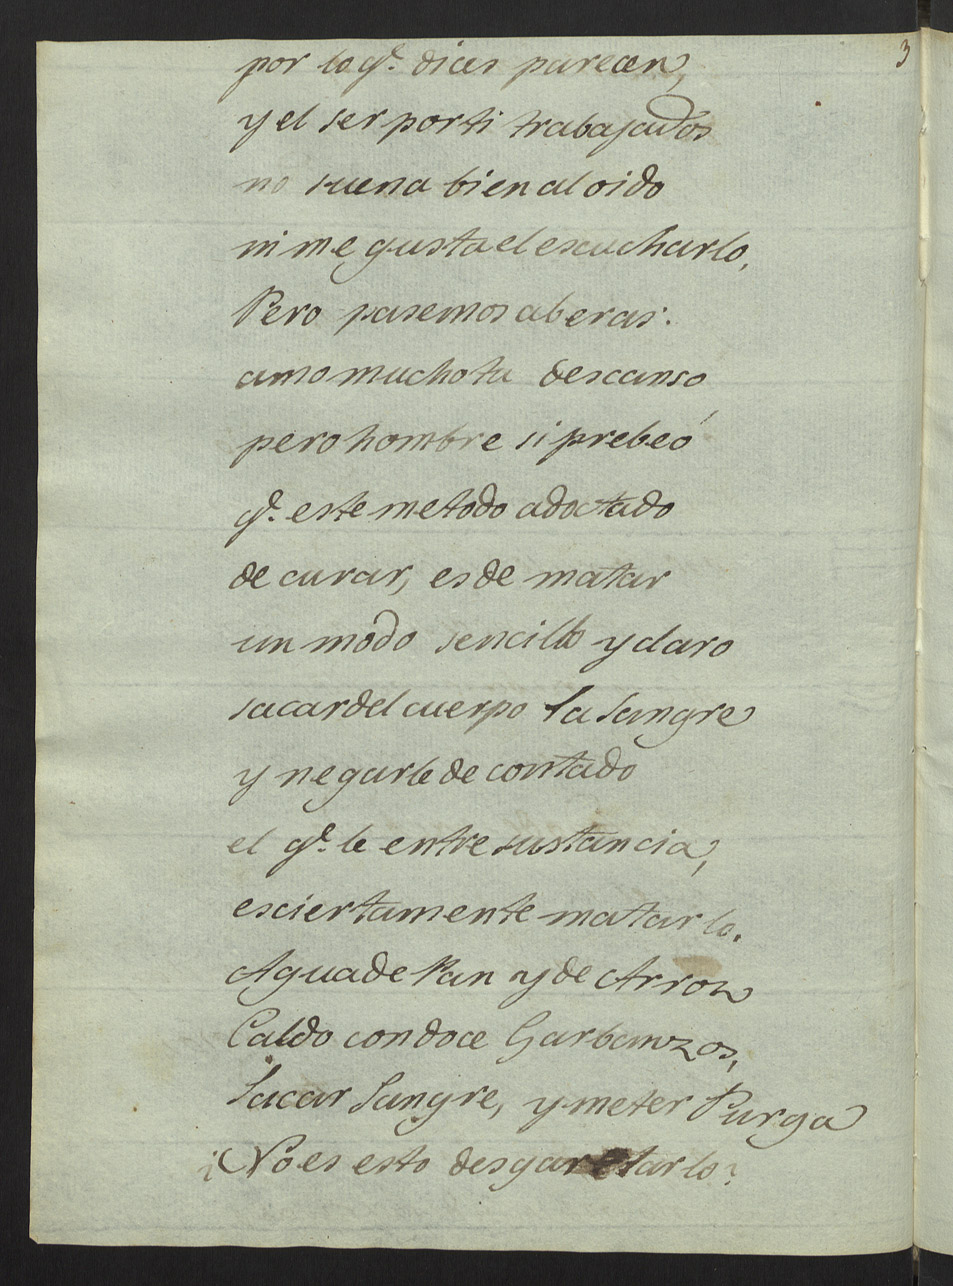 3
por lo q.ᵉ dices parecen,
y el ser por ti trabajados
no suena bien al oido
ni me gusta el escucharlo,
Pero pasemos a beras:
amo mucho tu descanso
pero hombre si prebeó
q.ᵉ este metodo adoctado
de curar, es de matar
un modo sencillo y claro
sacar del cuerpo la Sangre
y negarle de contado
el q.ᵉ le entre sustancia,
es ciertamente matarlo.
Agua de Pan y de Arroz
Caldo con doce Garbanzos,
Sacar Sangre, y meter Purga
¿No es esto desgarretarlo?